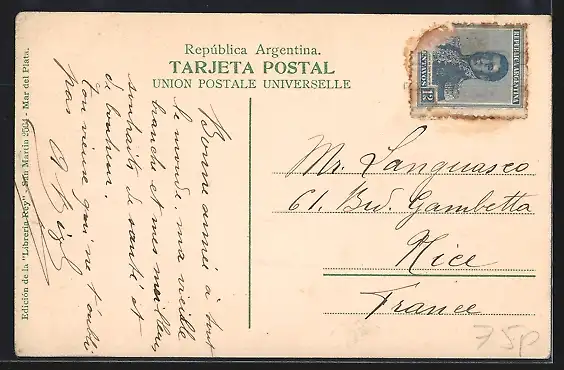 República Argentina.
TARJETA POSTAL
UNION POSTALE UNIVERSELLE
REPUBLICA ARGENTINA
12 CENTAVOS 12
Bonne année à tout
le monde, ma vieille
branche et mes meilleurs
souhaits de santé et
de bonheur.
Ton vieux qui ne t'oublie
pas
Mr. Languasco
61. Bvd. Gambetta
Nice
France
75p
Edición de la "Libreria Rey" - San Martin 2564 - Mar del Plata.